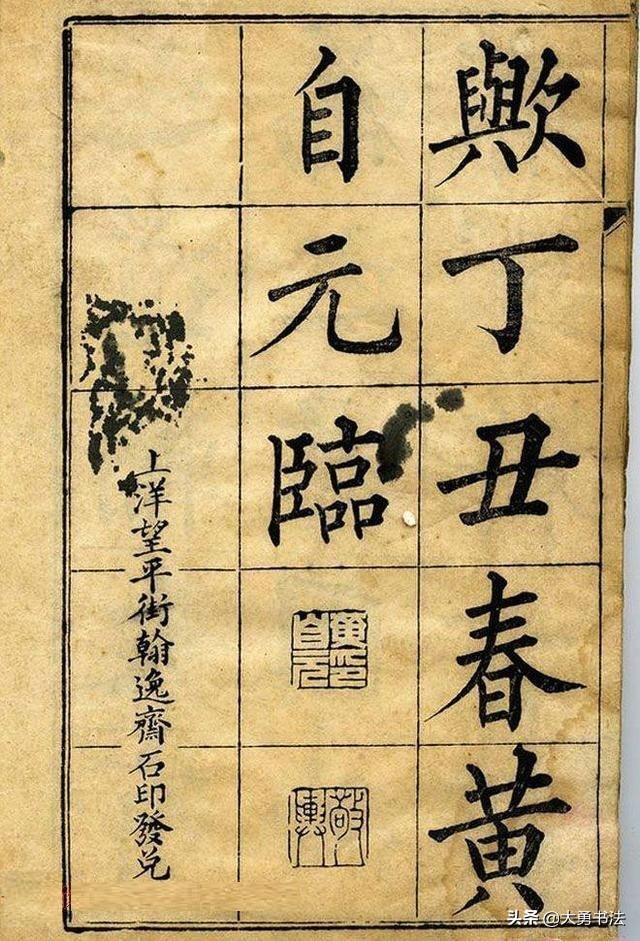 歟丁丑春黃
自元臨
黃印自元
敬輿
上洋望平街翰逸齋石印發兌
头条@大勇书法